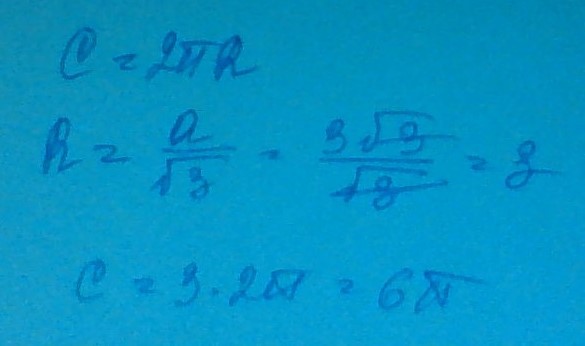 C = 2πR
R = a/√3 = 3√3/√3 = 3
C = 3·2π = 6π